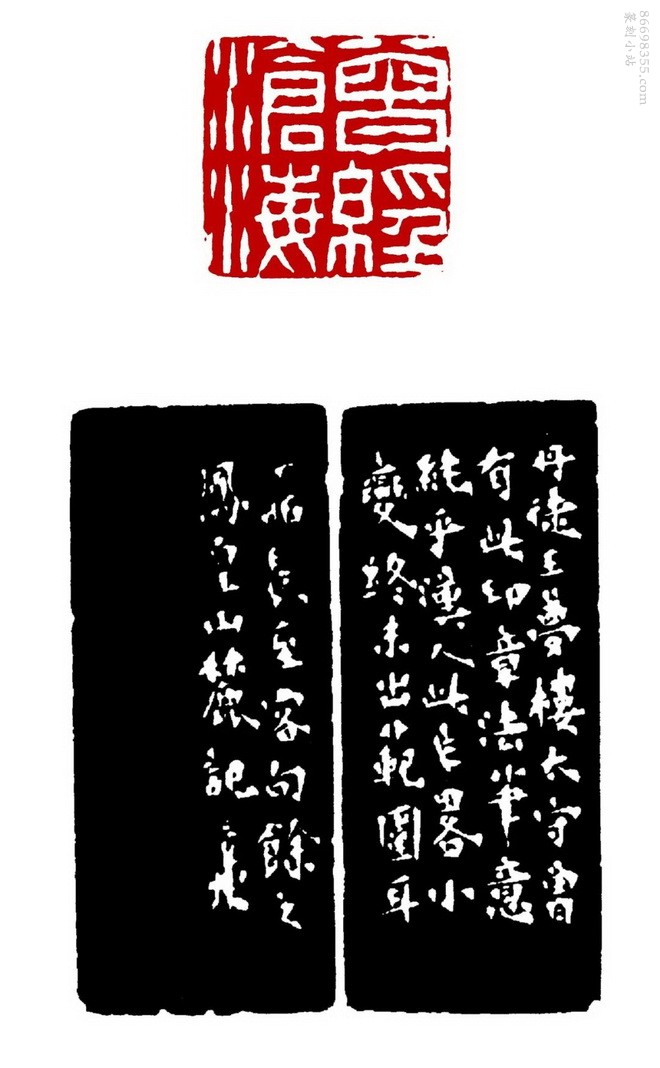 86698355.com
篆刻小站
曾經
滄海
丹徒王夢樓太守曾
有此印章法筆意
純乎漢人此作畧小
變終未出範圍耳
長至客句餘之
鳳皇山麓記